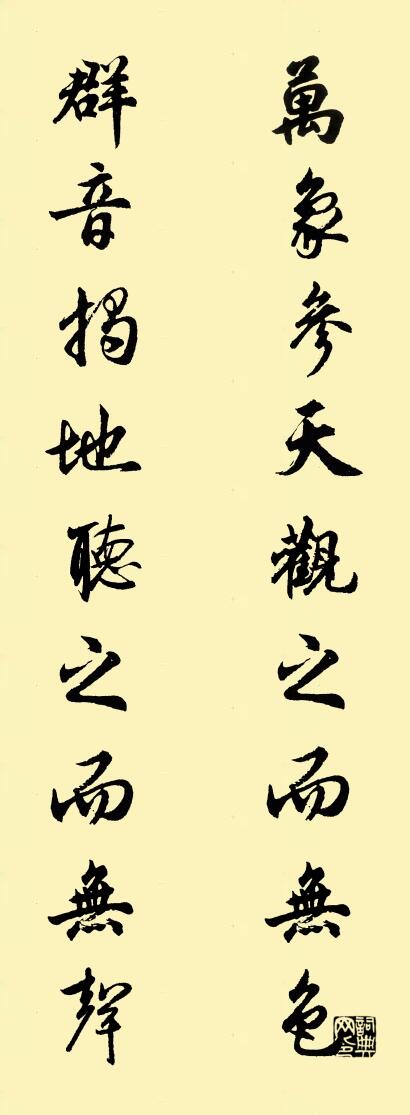 萬象參天觀之而無色
群音揭地聽之而無聲
詞典網